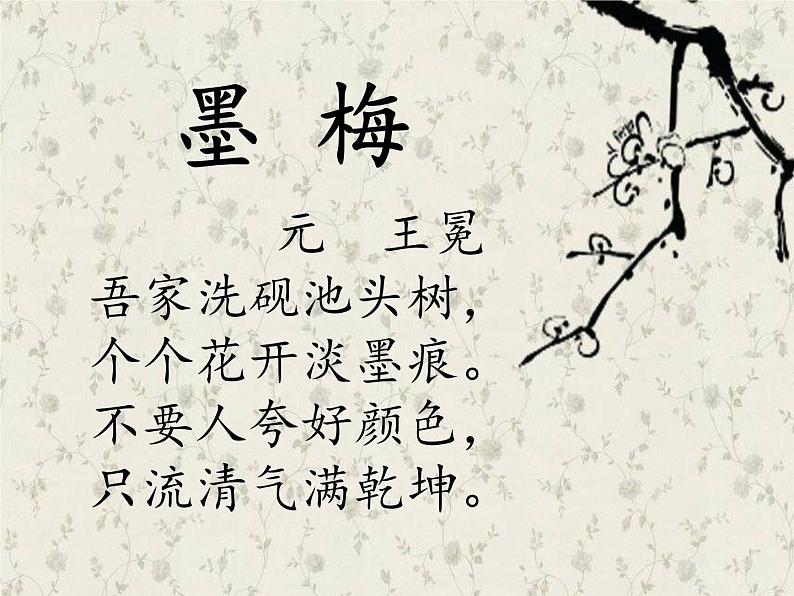 墨 梅
元 王冕
吾家洗砚池头树，
个个花开淡墨痕。
不要人夸好颜色，
只流清气满乾坤。